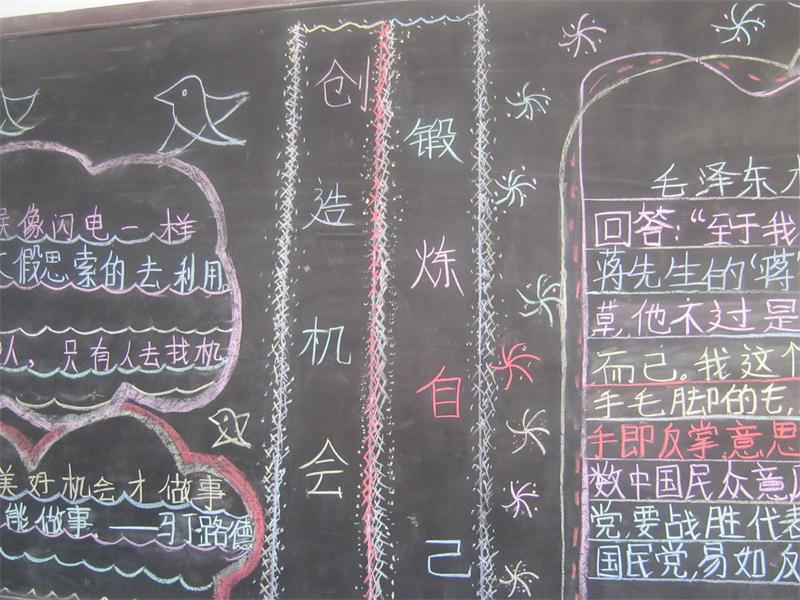 像闪电一样
假思索的去利用。
人，只有人去找机
美好机会才做事
能做事 ——马丁路德
创造机会
锻炼自己
毛泽东
回答：“至于我
蒋先生的‘蒋’
草，他不过是
而己。我这个
手毛脚的毛，
手即反掌，意思
数中国民众意
党要战胜代表
国民党，易如反